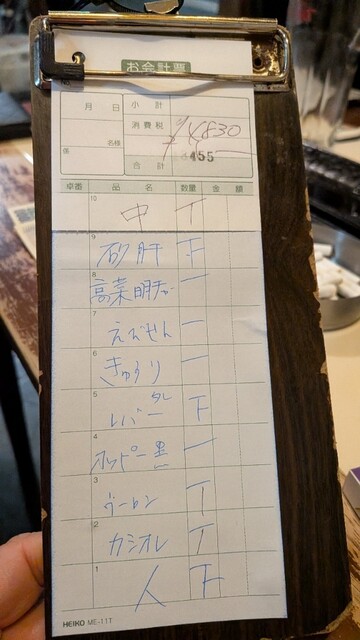 お会計票
月 日 小計
名様 消費税
係 合計
¥4830
455
卓番 品名 数量 金額
10 中 T
9 砂肝 下
8 高菜明チャー 一
7 えびせん 一
6 きゅうり 一
5 レバー タレ 下
4 ホッピー黒 一
3 ウーロン T
2 カシオレ T
1 人 下
HEIKO ME-11T